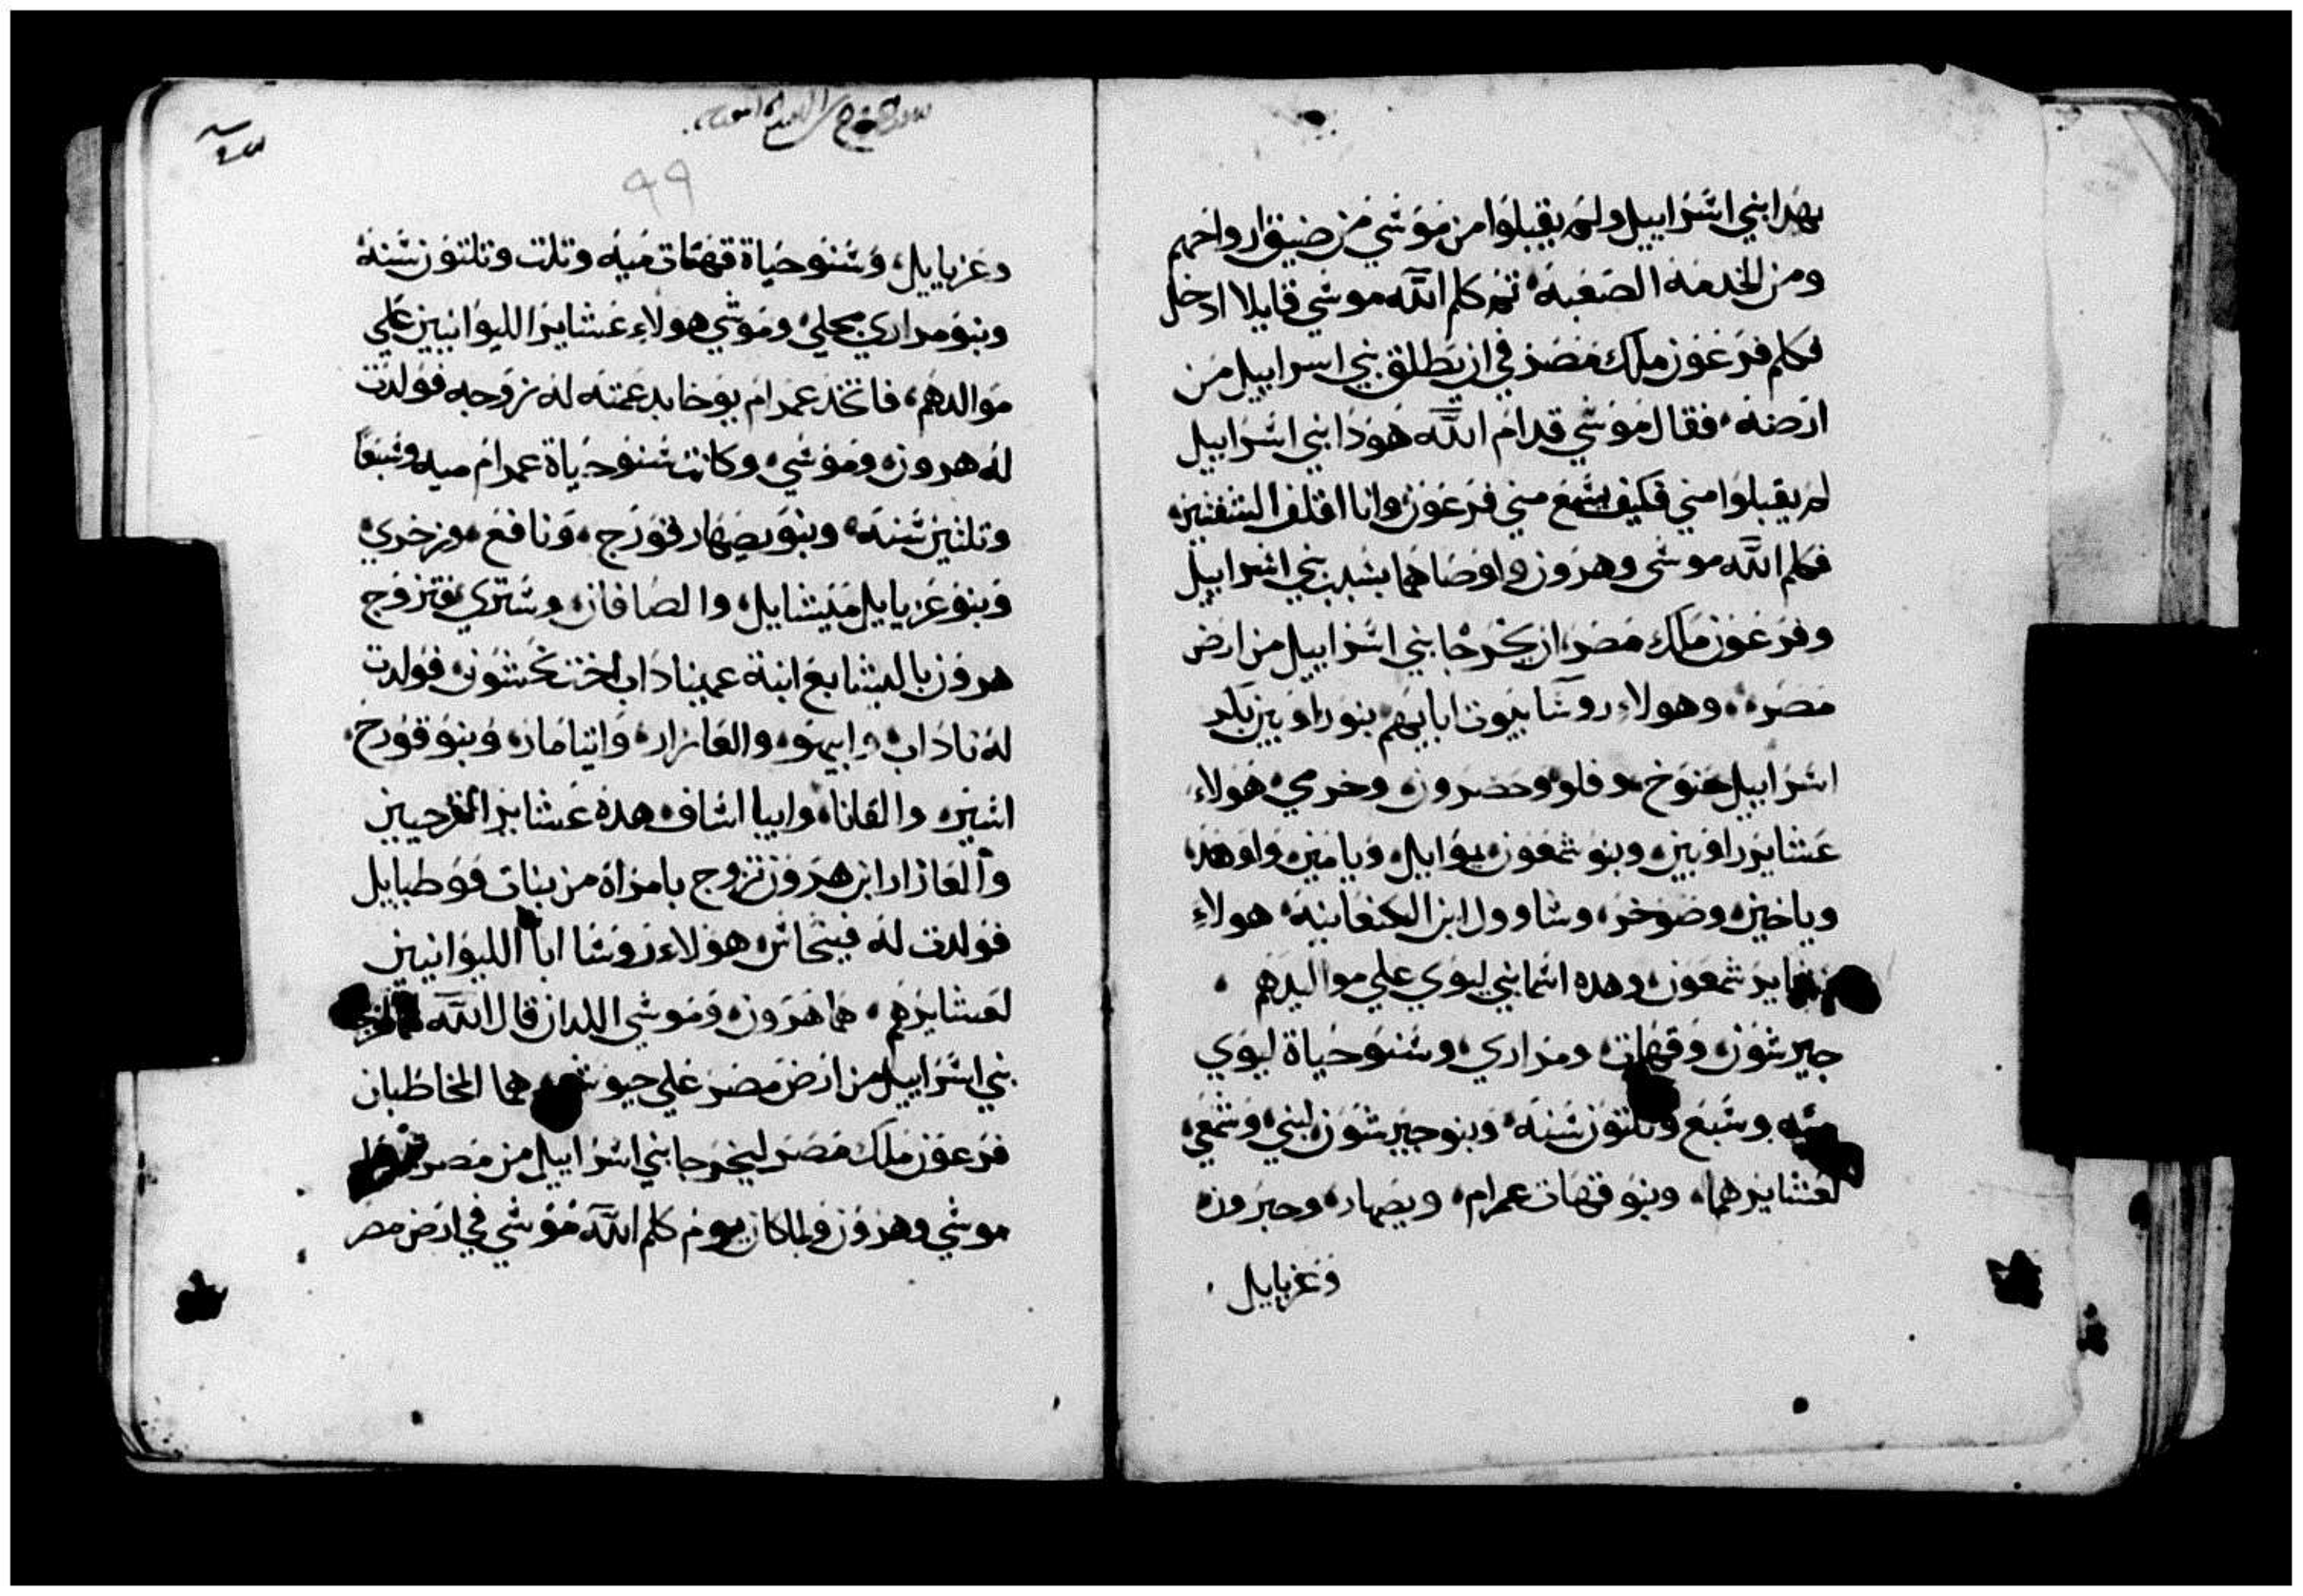 بهدا بني اسراييل ولم يقبلوا من موسي من ضيق ارواحهم
ومن الخدمه الصعبة ثم كلم الله موسي قايلا ادخل
فكلم فرعون ملك مصر في ان يطلق بني اسراييل من
ارضه فقال موسي قدام الله هودا بني اسراييل
لم يقبلوا مني فكيف يسمع مني فرعون وانا اقلف الشفتين
فكلم الله موسى وهرون واوصاهما بسبب بني اسراييل
وفرعون ملك مصر ان يخرجا بني اسراييل من ارض
مصر وهولاء روسا بيوت ابايهم بنو راوبين بكر
اسراييل حنوخ وفلو وحضرون وخرمي هولاء
عشاير راوبين وبنو شمعون يوايل ويامين واوهد
وياخين وضوخر وشاوول ابن الكنعانية هولاء
عشاير شمعون وهده اسما بني ليوي علي مواليدهم
جيرشون وقهات ومراري وسنو حياة ليوي
ميه وسبع وتلتون سنة وبنو جيرشون لبني وشمعي
لعشايرهما وبنو قهات عمرام ويصهار وحبرون
وعزيايل
سفر الخروج من التوراه
99
وعزياييل وسنو حياة قهات ميه وتلت وتلتون سنة
وبنو مراري محلي وموشي هولاء عشاير الليوانيين علي
موالدهم فاتخد عمرام يوخابد عمته له زوجه فولدت
له هرون وموسي وكانت سنو حياة عمرام ميه وسبعا
وتلتين سنة وبنو يصهار قورح ونافع وزخري
وبنو عزيايل ميشايل والصافان وستري فتزوج
هرون باليشابع ابنة عميناداب اخت نحشون فولدت
له ناداب وابيهو والعازار وايتامار وبنو قورح
اسير والقانا وابيا اساف هده عشاير القرحيين
والعازار ابن هرون تزوج بامراة من بنات فوطيايل
فولدت له فينحاس هولاء روسا ابا الليوانيين
لعشايرهم هما هرون وموسي اللدان قال الله لهما اخرجا
بني اسراييل من ارض مصر علي جيوشهم هما المخاطبان
فرعون ملك مصر ليخرجا بني اسراييل من مصر
موسي وهرون ولما كان يوم كلم الله موسي في ارض مصر